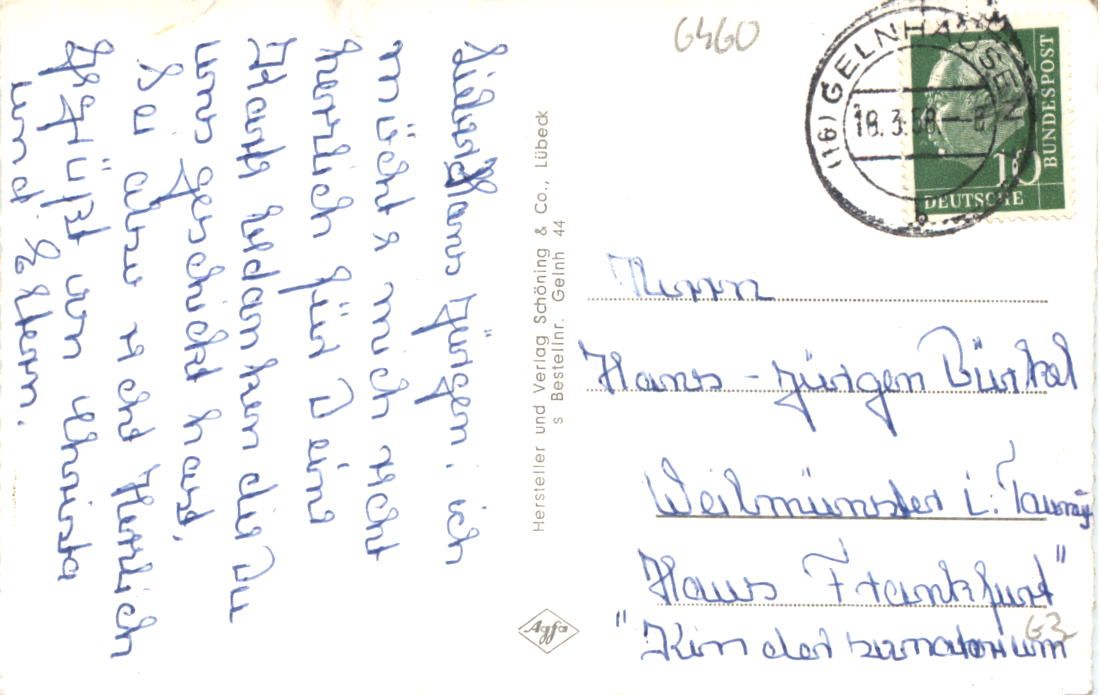 Lieber Hans Jürgen! ich
möchte mich recht
herzlich für Deine
Karte bedanken die Du
uns geschickt hast.
Sei also recht Herzlich
Gegrüßt von Christa
und Eltern.
Hersteller und Verlag Schöning & Co., Lübeck
s Bestellnr. Gelnh 44
Agfa
6460
(16) GELNHAUSEN
18.3.58
10
DEUTSCHE
BUNDESPOST
Herrn
Hans-Jürgen Bürkel
Weilmünster i. Taunus
Haus Frankfurt"
"Kindersanatorium
G3